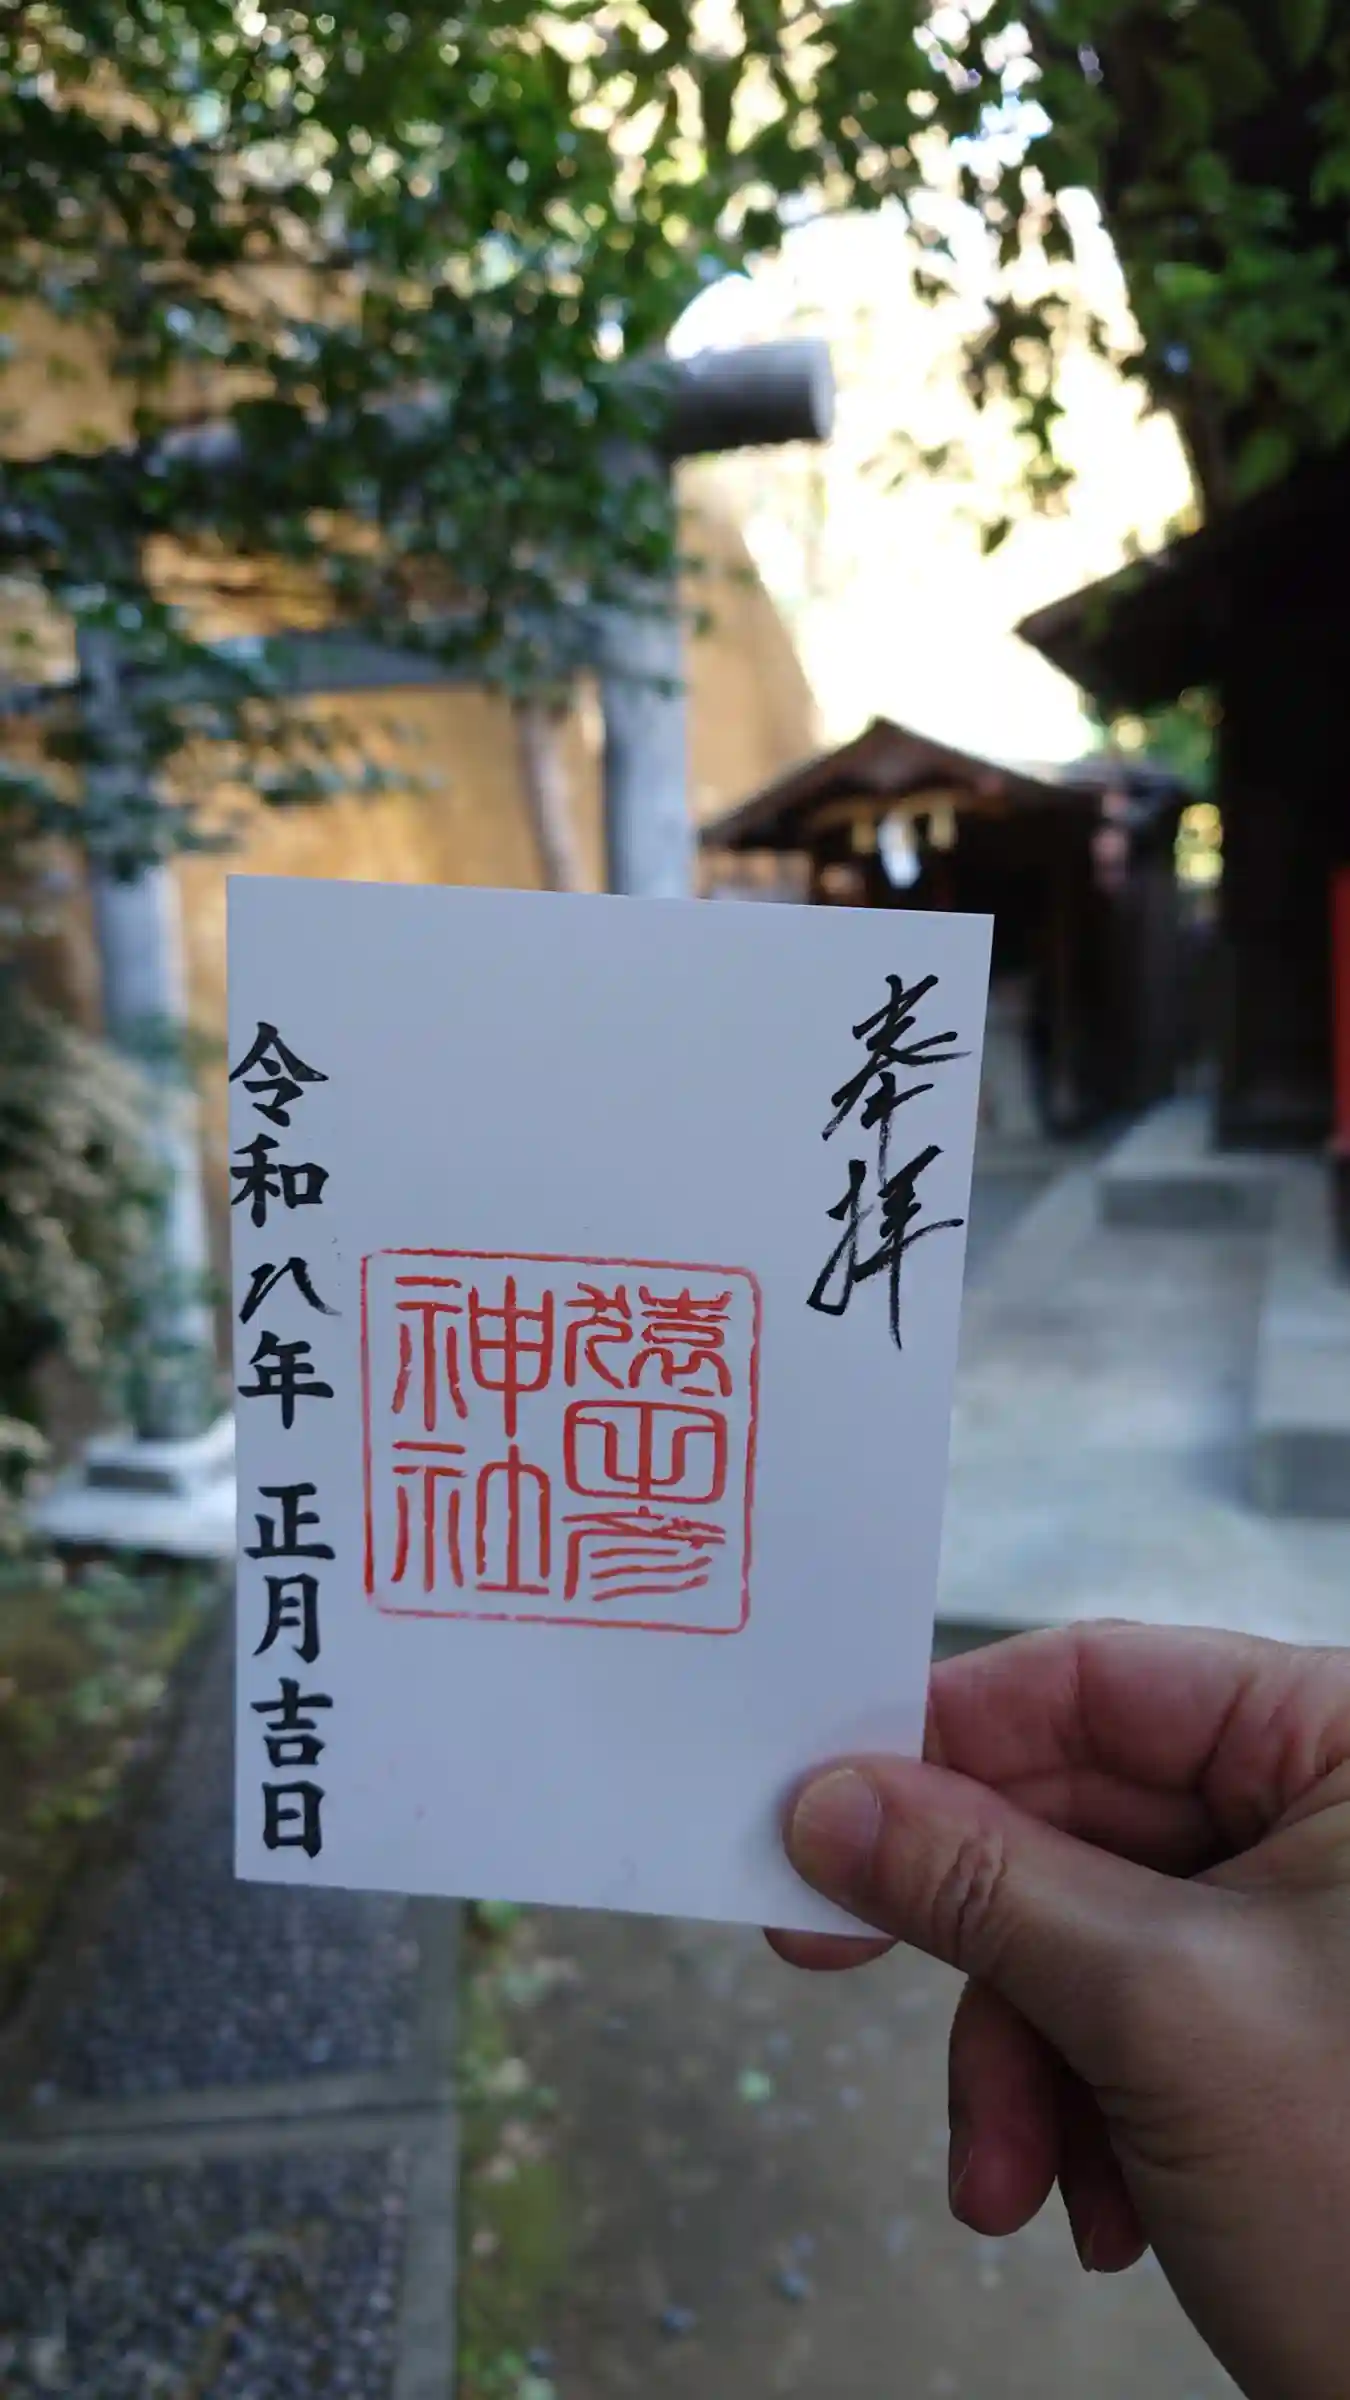 奉拝
猿田彦
神社
令和八年 正月吉日